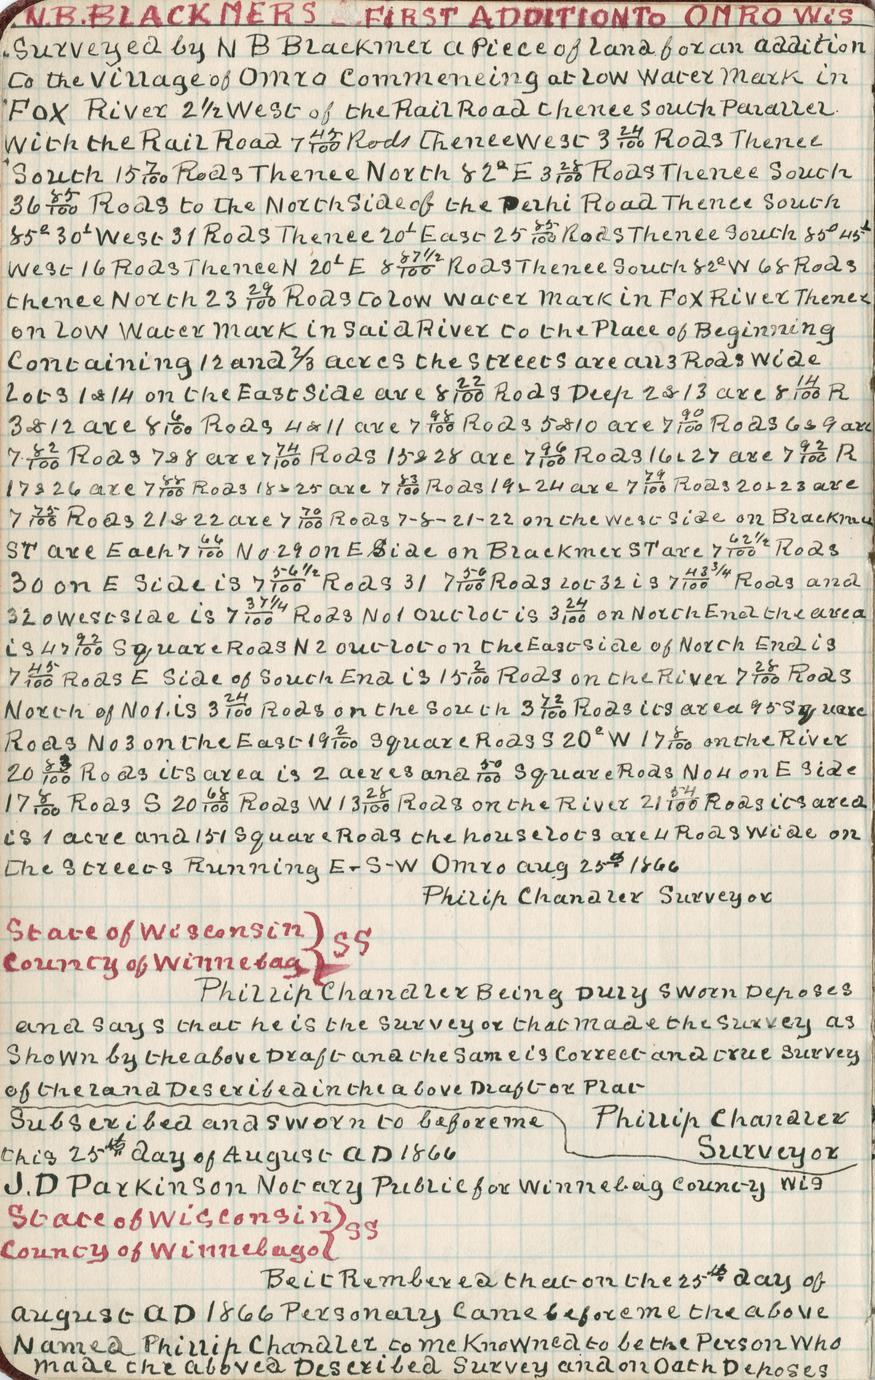 N.B. BLACKMERS FIRST ADDITION To OMRO WIS
Surveyed by N B Blackmer a Piece of land for an addition
to the Village of Omro Commenceing at Low Water Mark in
Fox River 2 1/2 West of the Rail Road thence South Parallel
With the Rail Road 7 45/100 Rods Thence West 3 24/100 Rods Thence
South 15 2/100 Rods Thence North 82° E 3 28/100 Rods Thence South
36 85/100 Rods to the North Side of the Delhi Road Thence South
85° 30' West 31 Rods Thence 20' East 25 85/100 Rods Thence South 85° 45'
West 16 Rods Thence N 20' E 8 87 1/2/100 Rods Thence South 82° W 68 Rods
thence North 23 29/100 Rods to Low Water Mark in Fox River Thence
on Low Water Mark in Said River to the Place of Beginning
Containing 12 and 2/3 acres the Streets are all 3 Rods Wide
Lots 1 & 14 on the East Side are 8 22/100 Rods Deep 2 & 13 are 8 14/100 R
3 & 12 are 8 6/100 Rods 4 & 11 are 7 98/100 Rods 5 & 10 are 7 90/100 Rods 6 & 9 are
7 82/100 Rods 7 & 8 are 7 74/100 Rods 15 & 28 are 7 96/100 Rods 16 & 27 are 7 92/100 R
17 & 26 are 7 88/100 Rods 18 & 25 are 7 83/100 Rods 19 & 24 are 7 79/100 Rods 20 & 23 are
7 75/100 Rods 21 & 22 are 7 70/100 Rods 7-8-21-22 on the West Side on Blackmer
ST are Each 7 66/100 No 29 on E Side on Blackmer ST are 7 62 1/2/100 Rods
30 on E Side is 7 56 1/2/100 Rods 31 7 50/100 Rods Lot 32 is 7 43 3/4/100 Rods and
32 o West side is 7 37 1/4/100 Rods No 1 outlot is 3 24/100 on North End the area
is 47 92/100 Square Rods N 2 outlot on the East side of North End is
7 45/100 Rods E Side of South End is 15 2/100 Rods on the River 7 28/100 Rods
North of No 1. is 3 24/100 Rods on the South 3 72/100 Rods its area 95 Square
Rods No 3 on the East 19 2/100 Square Rods S 20° W 17 8/100 on the River
20 83/100 Rods its area is 2 acres and 50/100 Square Rods No 4 on E Side
17 8/100 Rods S 20 68/100 Rods W 13 28/100 Rods on the River 21 54/100 Rods its area
is 1 acre and 151 Square Rods the house lots are 4 Rods Wide on
the Streets Running E-S-W Omro aug 25th 1866
Philip Chandler Surveyor
State of Wisconsin } SS
County of Winnebag
Phillip Chandler Being Duly Sworn Deposes
and Says that he is the Surveyor that Made the Survey as
Shown by the above Draft and the Same is Correct and true Survey
of the land Described in the above Draft or Plat
Subscribed and Sworn to before me Phillip Chandler
this 25th day of August AD 1866 Surveyor
J.D Parkinson Notary Public for Winnebag County Wis
State of Wisconsin } SS
County of Winnebago
Be it Rembered that on the 25th day of
august AD 1866 Personaly Came before me the above
Named Phillip Chandler to me KnoWned to be the Person Who
made the aboved Described Survey and on Oath Deposes